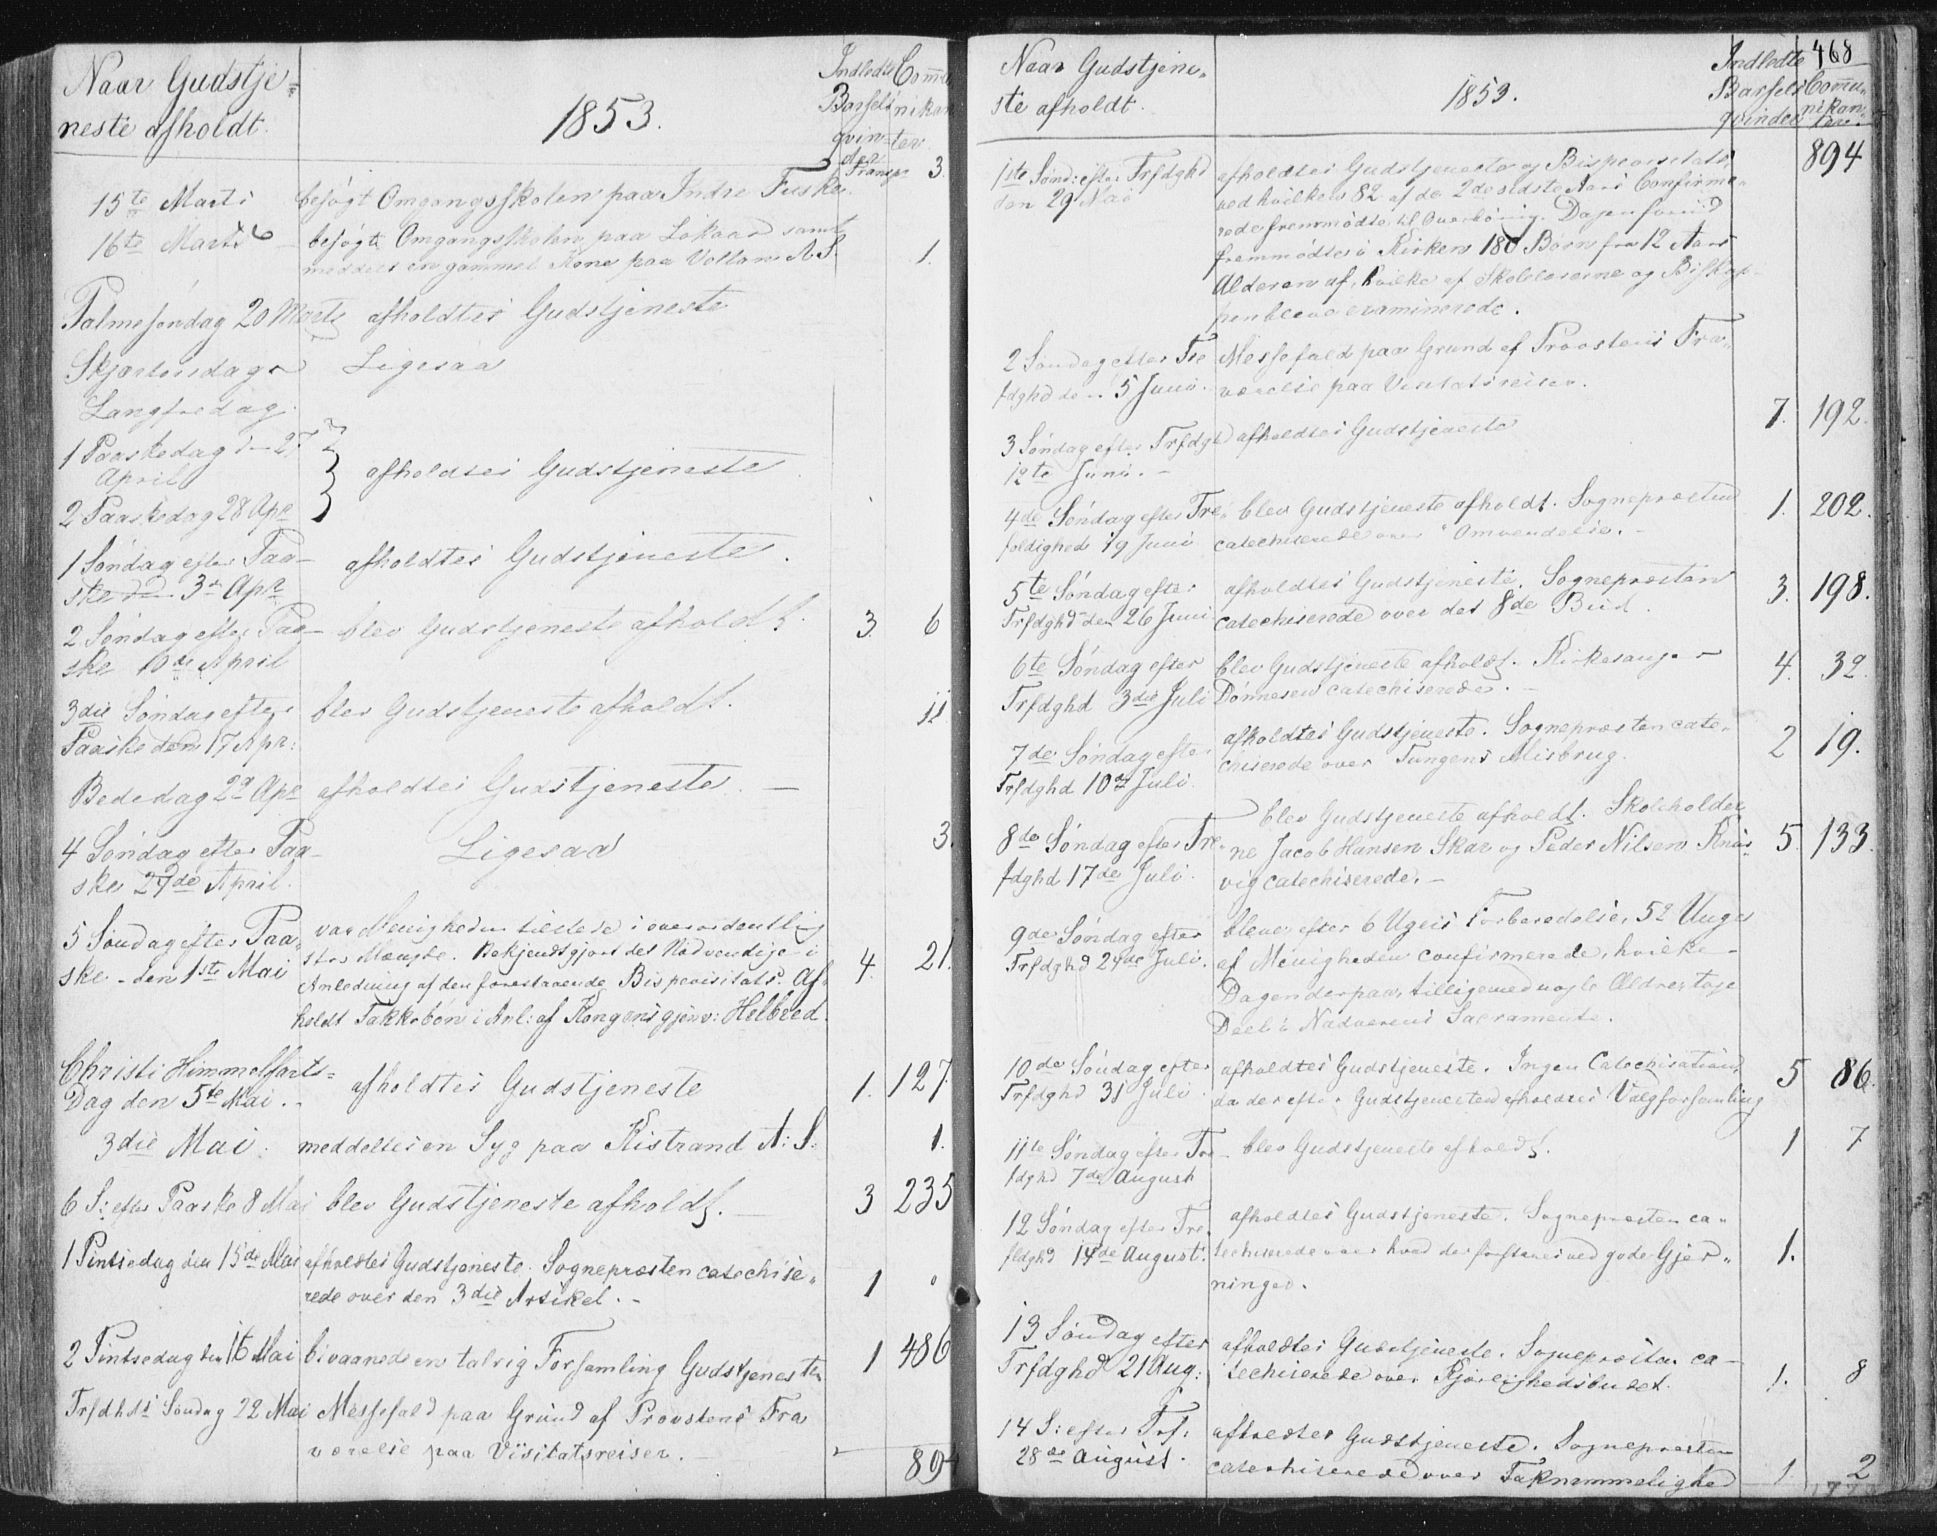 Naar Gudstje-
neste afholdt.
1853.
Indledte
Barsels
qvin-
der
Com̅u
nikan
ter
Transp. 3.
15te Marts besøgt Omgangsskolen paa Indre Tuske
16te Marts besøgt Omgangsskolen paa Løkaas samt
meddelt en gammel Kone paa Vollan A. S. 1.
Palmesøndag 20 Marts afholdtes Gudstjeneste
Skjærtorsdag Ligesaa
Langfredag.
1 Paaskedag d. 27
April
afholdtes Gudstjeneste
2 Paaskedag 28 Apr
1 Søndag efter Paa- afholdtes Gudstjeneste.
ske d. 3de Apr
2 Søndag efter Paa- blev Gudstjeneste afholdt. 3. 6
ske 10de April
3die Søndag efter blev Gudstjeneste afholdt. 11
Paaske den 17 Apr:
Bededag 22 Apr afholdtes Gudstjeneste. —
4 Søndag efter Paa- Ligesaa 3.
ske 24de April.
5 Søndag efter Paa- var Menigheden tilstede i overordentlig
ske - den 1ste Mai stor Mængde. Bekjendtgjort det Nødvendige i 4. 21.
Anledning af den forestaaende Bispevisitats. Af-
holdt Takkebøn i Anl: af Kongens gjenv: Helbred.
Christi Himmelfarts-
Dag den 5te Mai. afholdtes Gudstjeneste 1. 127.
3die Mai. meddeltes en Syg paa Ristrand A: S. 1.
6 S: efter Paaske 8 Mai blev Gudstjeneste afholdt. — 3 235
1 Pintsedag den 15de Mai afholdtes Gudstjeneste. Sognepræsten catechise-
rede over den 3die Artikel. - 1
2 Pintsedag den 16 Mai bivaanede en talrig Forsamling Gudstjenesten 1 486
Trfdhds Søndag 22 Mai Messefald paa Grund af Provstens Fra
værelse paa Visitatsreiser. —
894
468
Naar Gudstjene-
ste afholdt.
1853.
Indledte
Barsels
qvinder
Com̅u-
nikan-
ter.
894
1ste Sønd: efter Trfdghd afholdtes Gudstjeneste og Bispevisitats
den 29 Mai ved hvilken 82 af de 2de sidste Aars Confirme-
rede fremmødte til Overhøring. Dagen forud
fremmødte i Kirken 180 Børn fra 12 Aars
Alderen af, hvilke af Skolelærerne og Biskop-
pen bleve examinerede.
2 Søndag efter Tre Messefald paa Grund af Provstens Fra-
fdghd den 5 Juni. værelse paa Visitatsreiser.
3 Søndag efter Trfdghd afholdtes Gudstjeneste 7. 192.
12te Juni. -
4de Søndag efter Tre- blev Gudstjeneste afholdt. Sognepræsten 1. 202.
foldighed 19 Juni catechiserede over Omvendelse. -
5te Søndag efter afholdtes Gudstjeneste. Sognepræsten 3. 198.
Trfdghd den 26 Juni catechiserede over det 8de Bud.
6te Søndag efter blev Gudstjeneste afholdt. Kirkesanger 4. 32.
Trfdghd 3die Juli Dønnesen catechiserede. -
7de Søndag efter afholdtes Gudstjeneste. Sognepræsten cate- 2 19.
Trfdghd 10de Juli. chiserede over Tungens Misbrug.
blev Gudstjeneste afholdt. Skoleholder
8de Søndag efter Tre- ne Jacob Hansen Skar og Peder Nilsen 5. 133.
fdghd 17de Juli. vig catechiserede. -
9de Søndag efter bleve efter 6 Ugers Forberedelse, 52 Unge
Trfdghd 24de Juli. af Menigheden confirmerede, hvilke
Dagen derpaa, tilligemed nogle Ældre, toge
Deel i Nadverens Sacramente.
10de Søndag efter afholdtes Gudstjeneste. Ingen Catechisation, 5 86.
Trfdghd 31 Juli da der efter Gudstjenesten afholdtes Valgforsamling
11te Søndag efter Tre- blev Gudstjeneste afholdt. 1 7
fdghd 7de August
12 Søndag efter Tre- afholdtes Gudstjeneste. Sognepræsten ca-
fldghd 14de August: techiserede over hvad der forstaaes ved gode Gjer- 1.
ninger.
13 Søndag efter afholdtes Gudstjeneste. Sognepræsten ca-
Trfdghd 21 Aug: techiserede over Kjærlighedsbudet. 1. 8
14 S: efter Trf: afholdtes Gudstjeneste. Sognepræsten
28de August. catechiserede over Taknemmelighed 1. 2